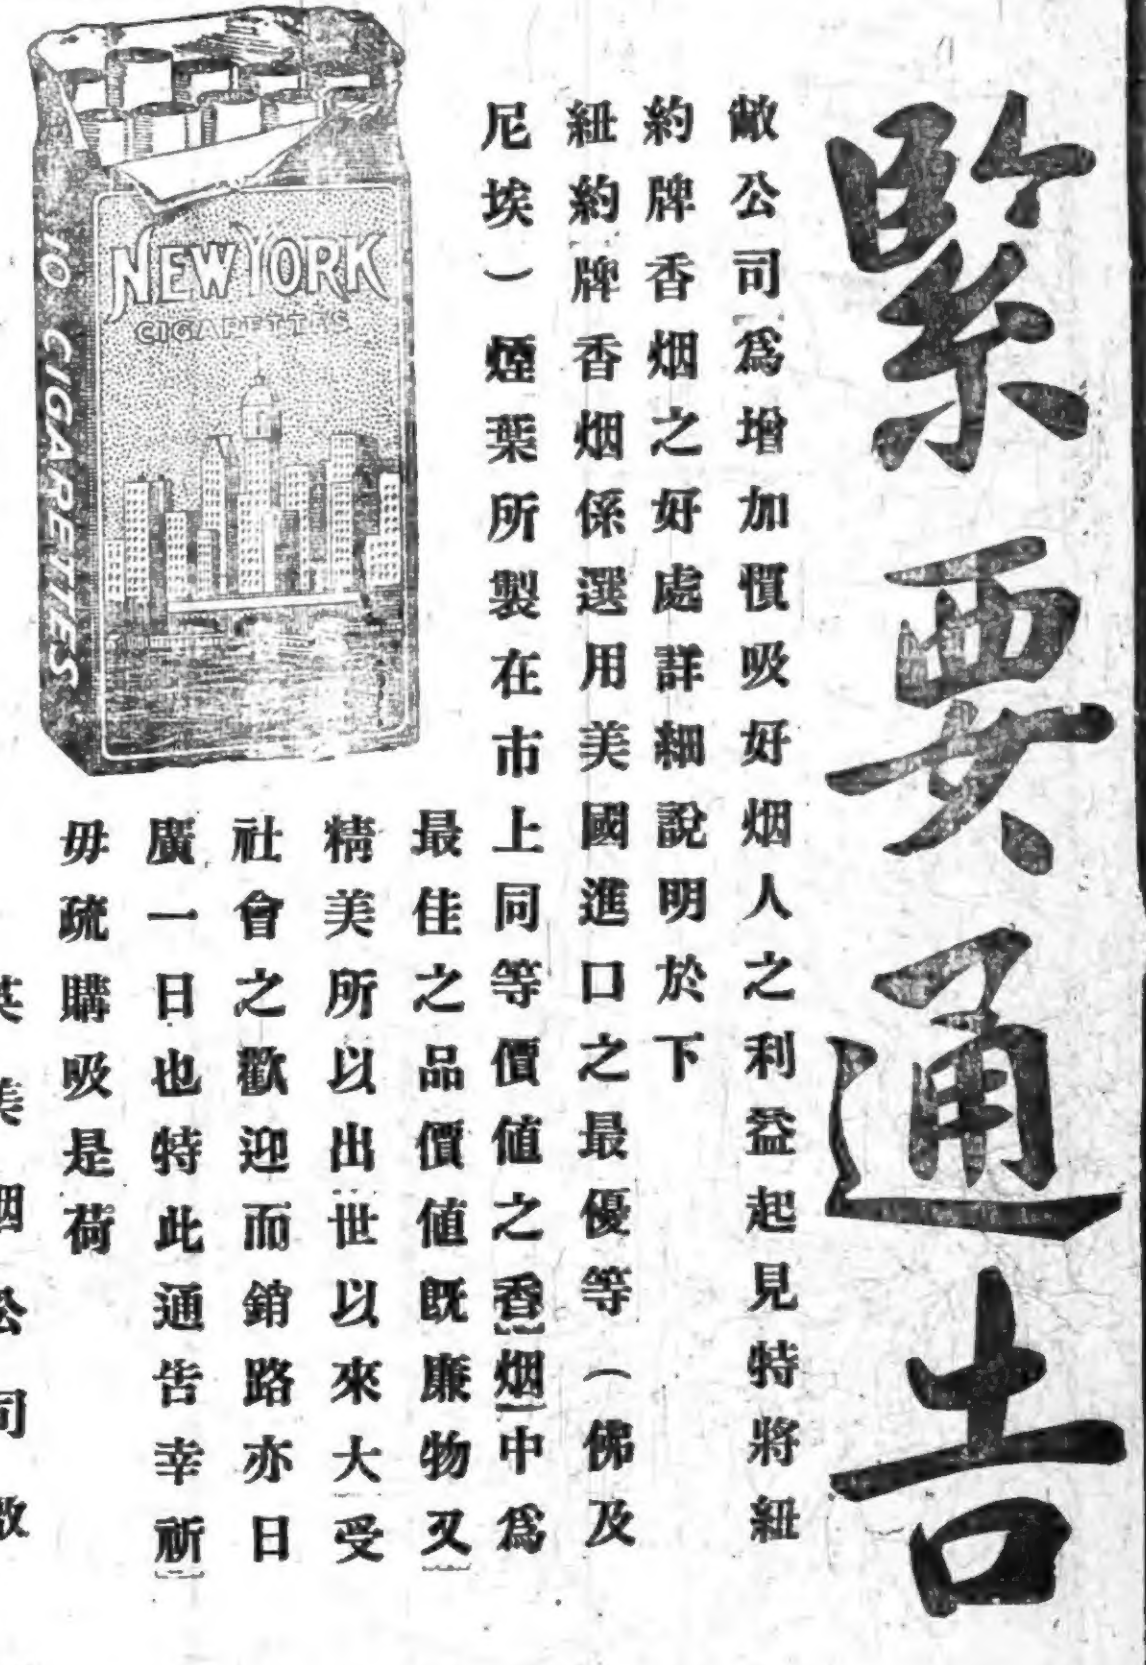 緊要通告
敝公司爲增加慣吸好烟人之利益起見特將紐
約牌香烟之好處詳細說明於下
紐約牌香烟係選用美國進口之最優等（佛及
尼埃）煙葉所製在市上同等價值之香烟中爲
最佳之品價値旣廉物又
精美所以出世以來大受
社會之歡迎而銷路亦日
廣一日也特此通告幸祈
毋疏購吸是荷
英美烟公司啟
NEW YORK
CIGARETTES
10 CIGARETTES